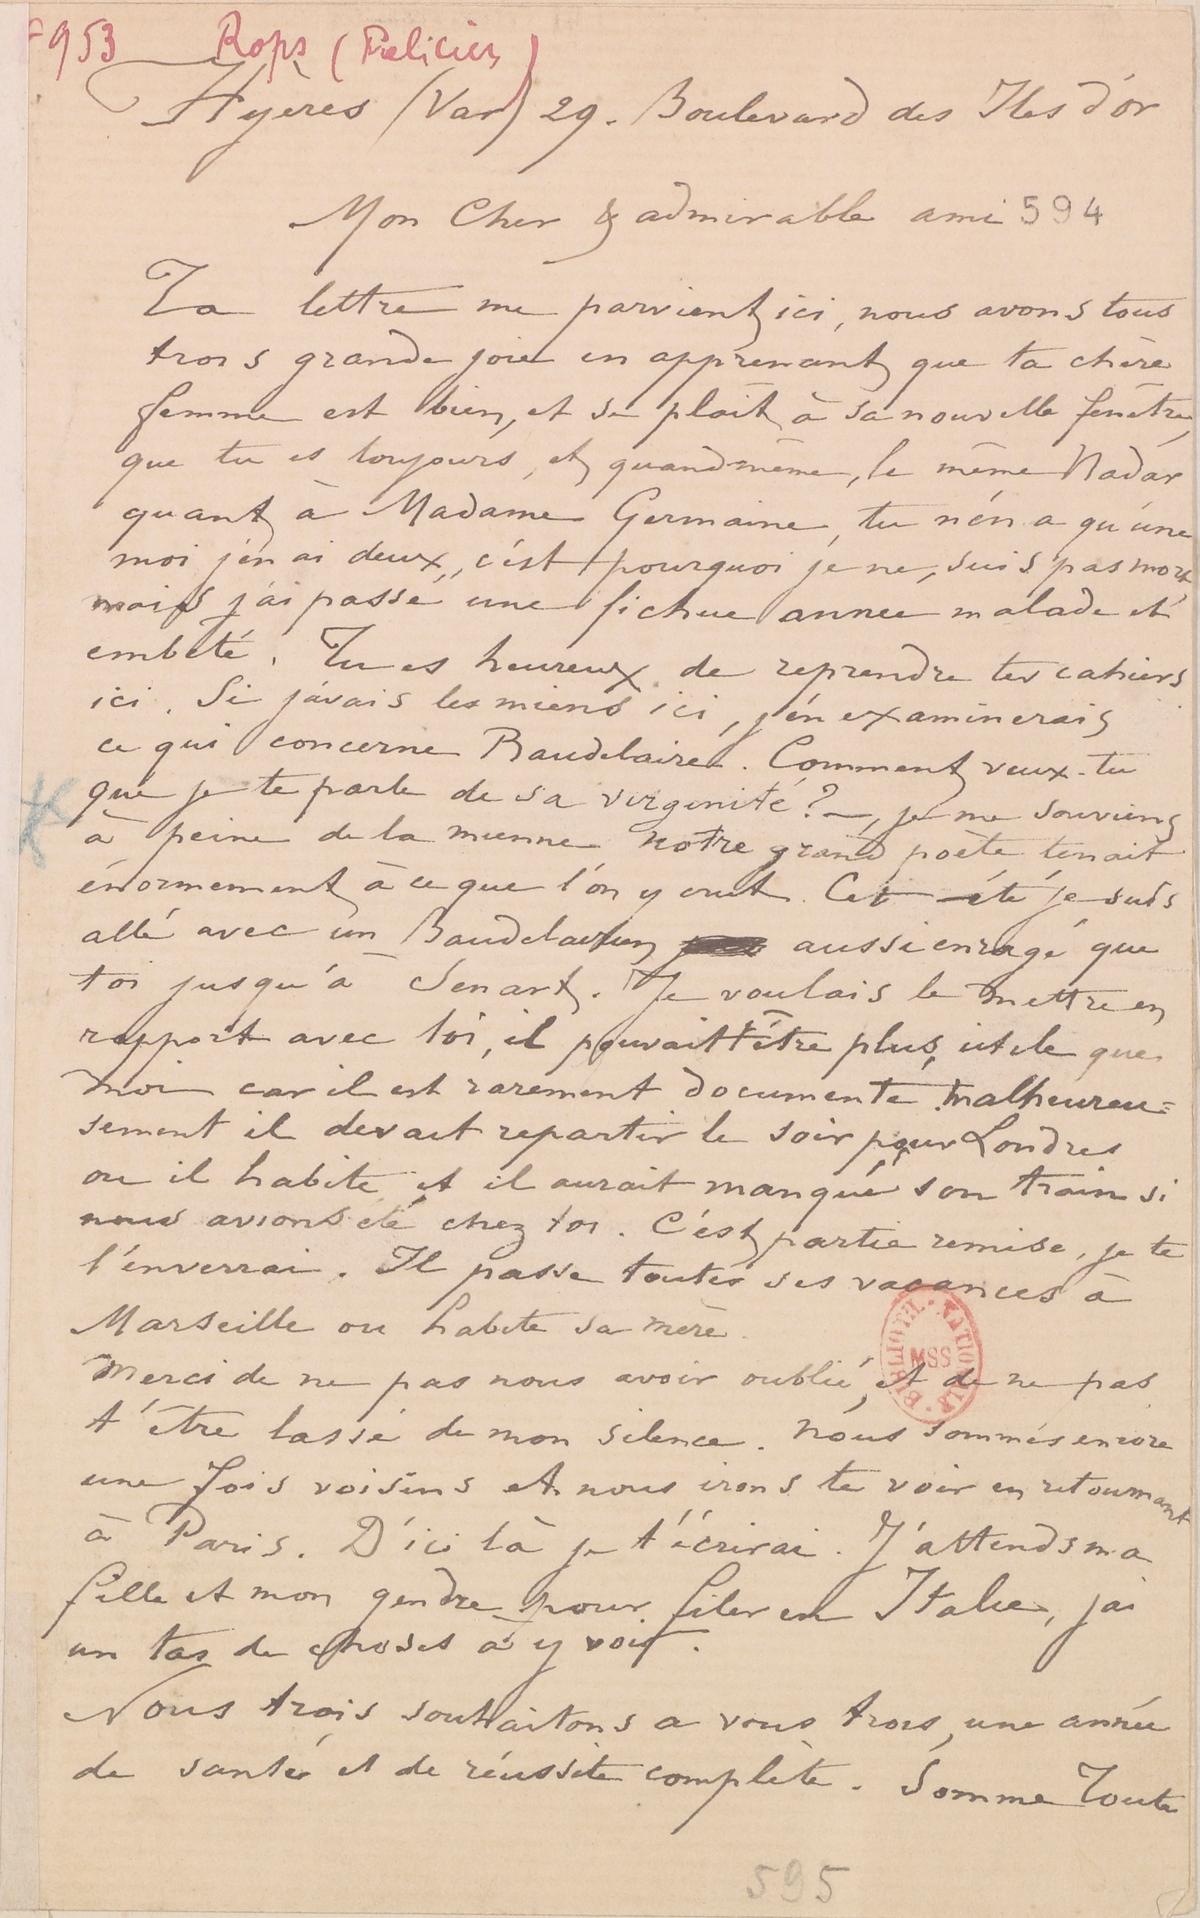 953 Rops (Félicien)
Hyères (Var) 29. Boulevard des Iles d'or
Mon Cher & admirable ami 594
Ta lettre me parvient ici, nous avons tous
trois grande joie en apprenant que ta chère
femme est bien, et se plait à sa nouvelle fenêtre,
que tu es toujours, et quandmême, le même Nadar
quant à Madame Germaine, tu n'en a qu'une
moi j'en ai deux, c'est pourquoi je ne suis pas mort
mais j'ai passé une fichue année malade et
embeté. Tu es heureux de reprendre tes cahiers
ici. Si j'avais les miens ici, j'en examinerais
ce qui concerne Baudelaire. Comment veux-tu
que je te parle de sa virginité? —, je me souviens
à peine de la mienne notre grand poète tenait
énormement à ce que l'on y crut. Cet été je suis
allé avec un Baudelairien aussi enragé que
toi jusqu'à Senart. Je voulais le mettre en
rapport avec toi, il pouvait t'être plus utile que
moi car il est rarement documenté malheureu=
sement il devait repartir le soir pour Londres
ou il habite et il aurait manqué son train si
nous avions été chez toi. C'est partie remise, je te
l'enverrai. Il passe toutes ses vacances à
Marseille ou habite sa mère.
Merci de ne pas nous avoir oublié, et de ne pas
t'être lassé de mon silence. Nous sommes encore
une fois voisins et nous irons te voir en retournant
à Paris. D'ici là je t'écrirai. J'attends ma
fille et mon gendre pour filer en Italie, j'ai
un tas de choses à y voir.
Nous trois souhaitons a vous trois, une année
de santé et de réussite complète. Somme Toute
BIBLIOTH. NATIONALE MSS
595